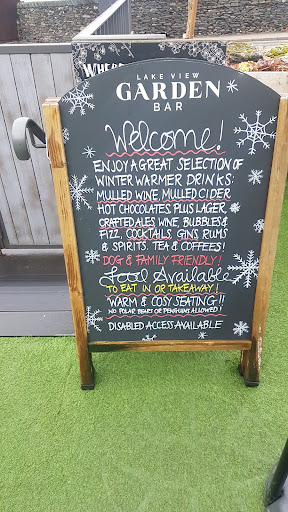 WHERE
LAKE VIEW
GARDEN
BAR
Welcome!
ENJOY A GREAT SELECTION OF
WINTER WARMER DRINKS:
MULLED WINE, MULLED CIDER
HOT CHOCOLATES, PLUS LAGER,
CRAFTED ALES, WINE, BUBBLES &
FIZZ, COCKTAILS, GINS, RUMS
& SPIRITS. TEA & COFFEES!
DOG & FAMILY FRIENDLY!
Food Available
TO EAT IN OR TAKEAWAY!
WARM & COSY SEATING!!
NO POLAR BEARS OR PENGUINS ALLOWED!
DISABLED ACCESS AVAILABLE